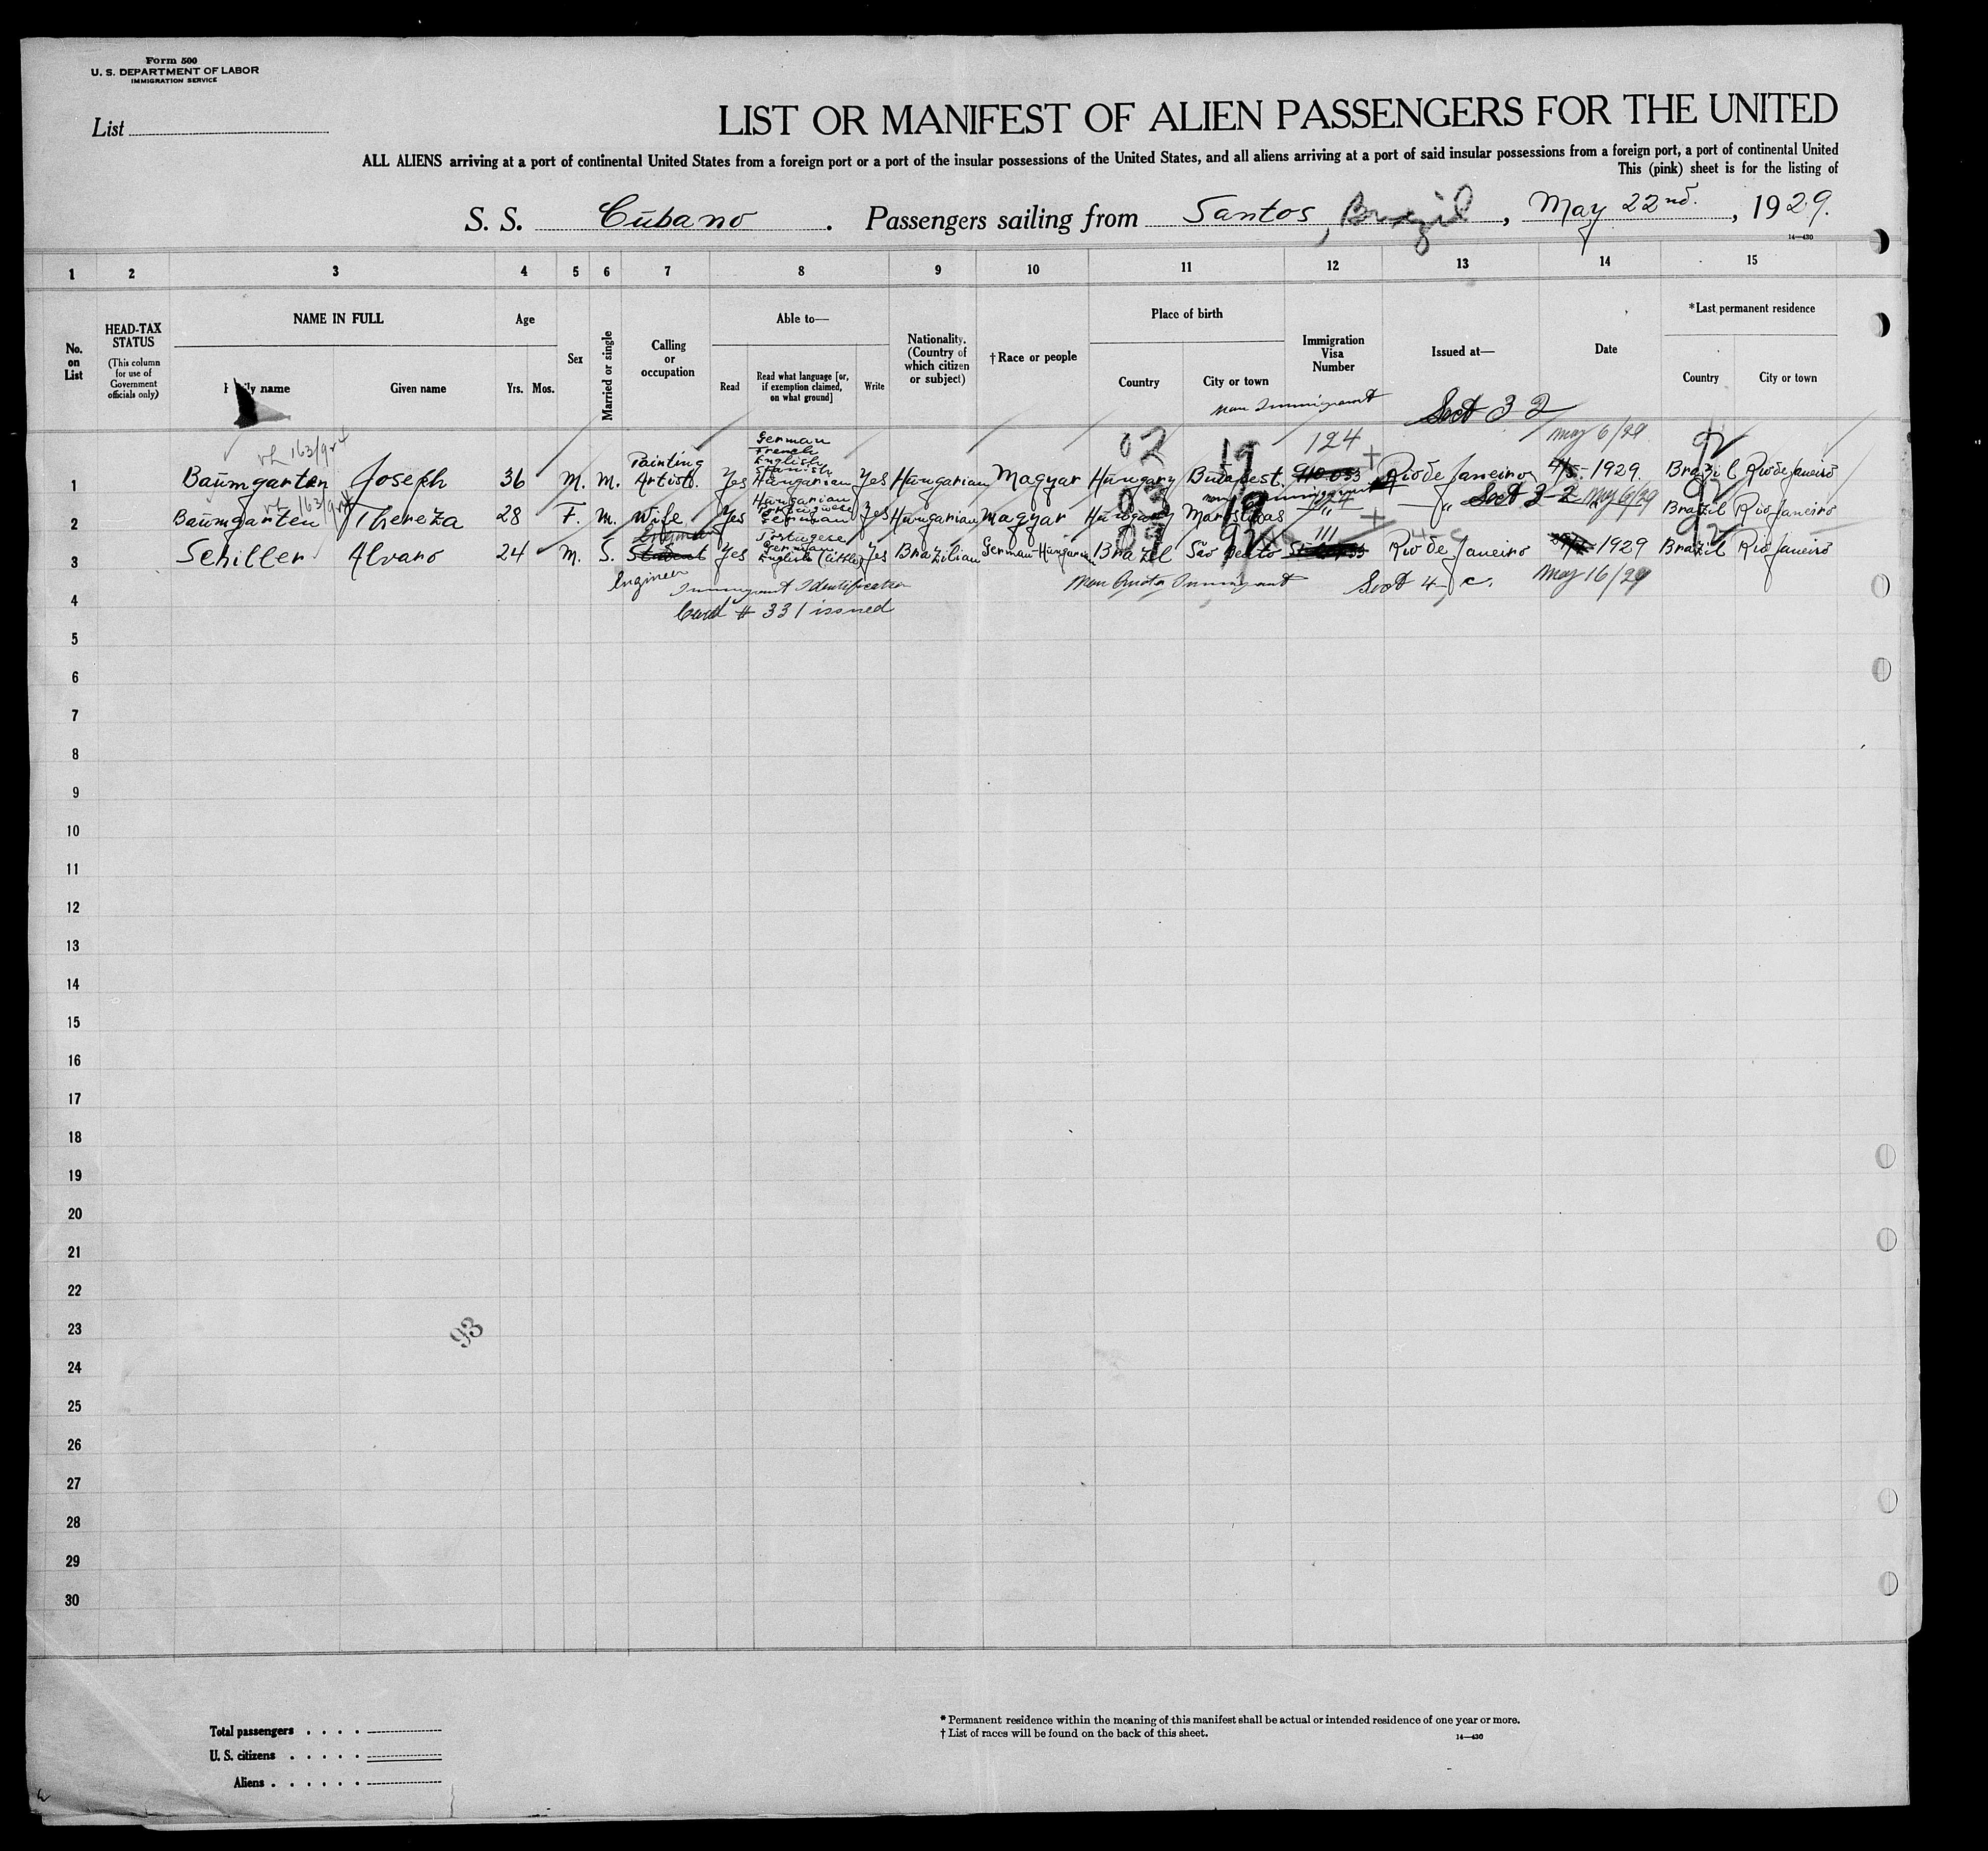 Form 500
U. S. DEPARTMENT OF LABOR
IMMIGRATION SERVICE
List
LIST OR MANIFEST OF ALIEN PASSENGERS FOR THE UNITED
ALL ALIENS arriving at a port of continental United States from a foreign port or a port of the insular possessions of the United States, and all aliens arriving at a port of said insular possessions from a foreign port, a port of continental United
This (pink) sheet is for the listing of
S. S. Cubano . Passengers sailing from Santos, Brazil , May 22nd. , 1929.
14—430
1 2 3 4 5 6 7 8 9 10 11 12 13 14 15
No. on List
HEAD-TAX STATUS
(This column for use of Government officials only)
NAME IN FULL
Family name
Given name
Age
Yrs. Mos.
Sex
Married or single
Calling or occupation
Able to—
Read
Read what language [or, if exemption claimed, on what ground]
Write
Nationality. (Country of which citizen or subject)
† Race or people
Place of birth
Country
City or town
Immigration Visa Number
Issued at—
Date
*Last permanent residence
Country
City or town
Non Immigrant Sect 3-2
163/9 02 19 124 May 6/29
1 Baumgarten Joseph 36 M. M. Painting Artist. Yes German French English Spanish Hungarian Yes Hungarian Magyar Hungary Budapest. Rio de Janeiro 1929. Brazil Rio de Janeiro
163/9 non immigrant Sect 3-2 May 6/29
2 Baumgarten Thereza 28 F. M. Wife Yes Hungarian Portuguese German Yes Hungarian Magyar Hungary " Brazil Rio Janeiro
3 Schiller Alvaro 24 M. S. Student Yes Portugese German English (little) Yes Brazilian German-Hungarian Brazil São Bento 111 Rio de Janeiro 1929 Brazil Rio Janeiro
Engineer Immigrant Identification Non Quota Immigrant Sect 4-c. May 16/29
4 Card # 331 issued
5
6
7
8
9
10
11
12
13
14
15
16
17
18
19
20
21
22
23
93
24
25
26
27
28
29
30
Total passengers
U. S. citizens
Aliens
* Permanent residence within the meaning of this manifest shall be actual or intended residence of one year or more.
† List of races will be found on the back of this sheet.
14—430